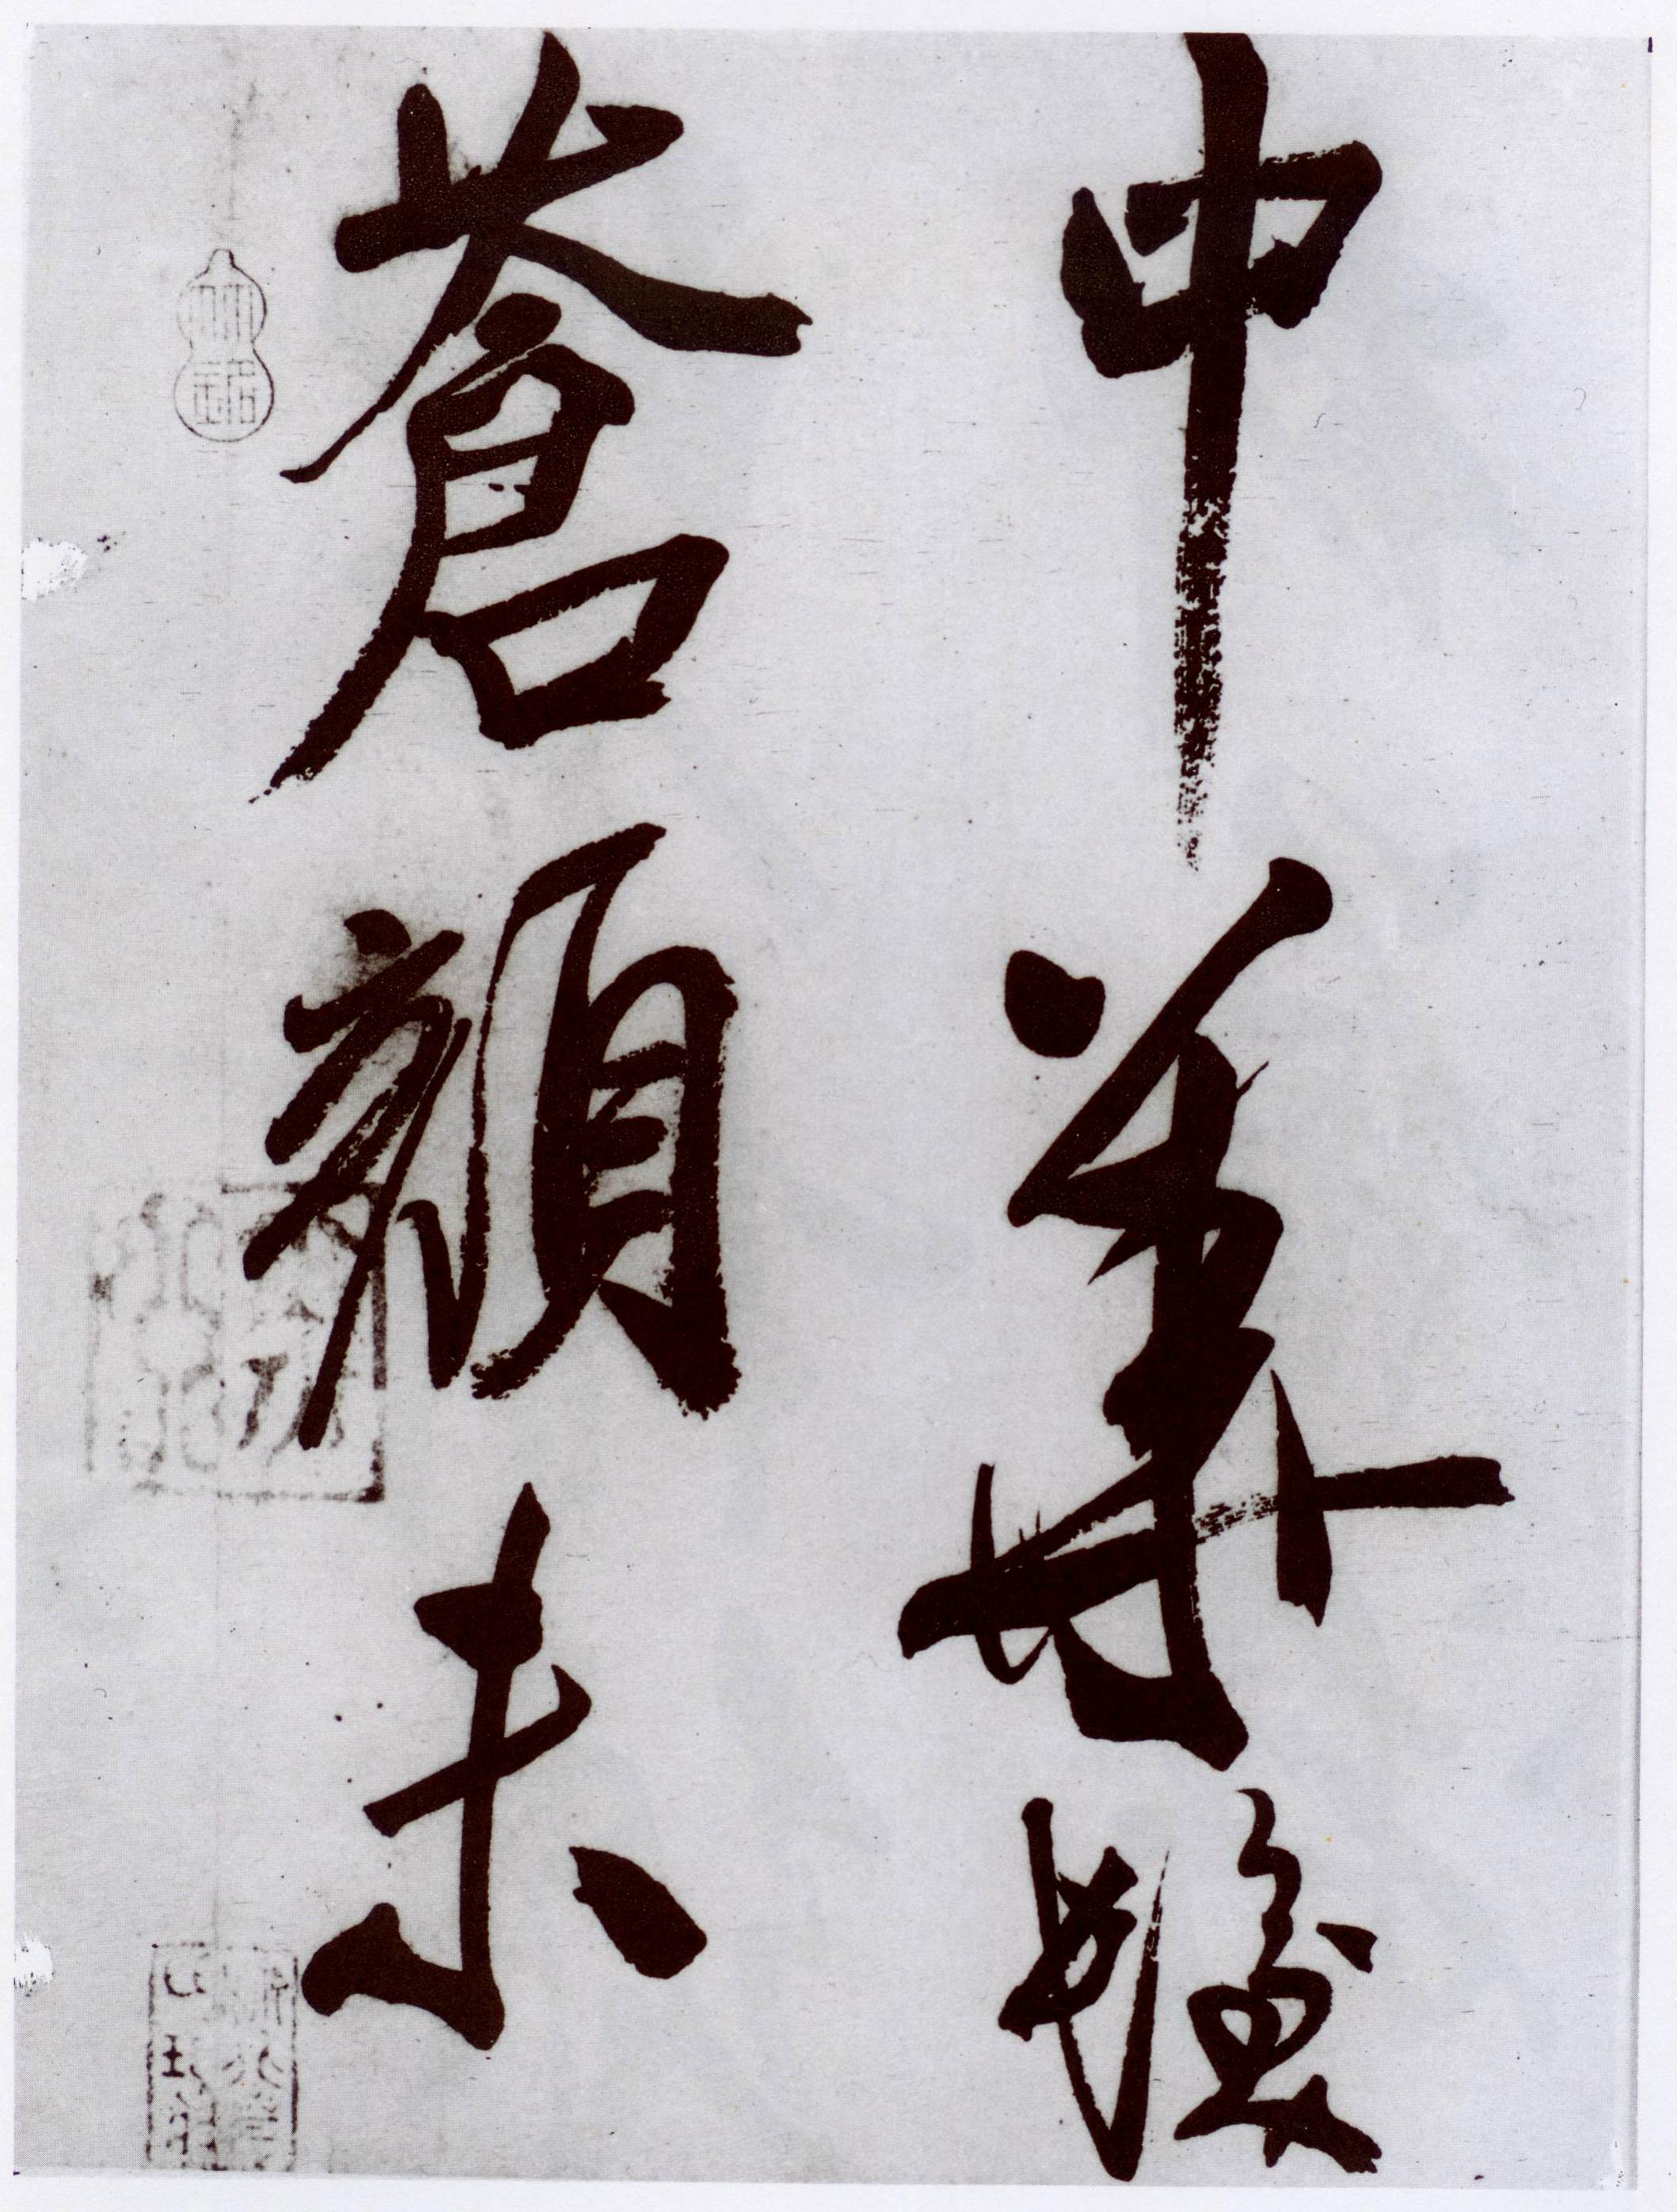 中華髮
蒼顏未